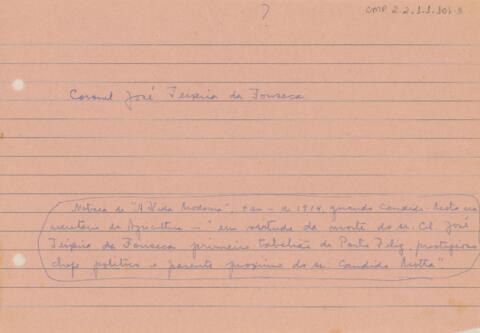 ?
CMP 2.2.1.1.101-3
Coronel José Teixeira da Fonseca
Noticia de "A Vida Moderna", de 1914, quando Candido Mota era
secretário da Agricultura — "em virtude da morte do sr. Cl. José
Teixeira da Fonseca primeiro tabelião de Porto Feliz, prestigioso
chefe politico e parente proximo do sr. Candido Motta"